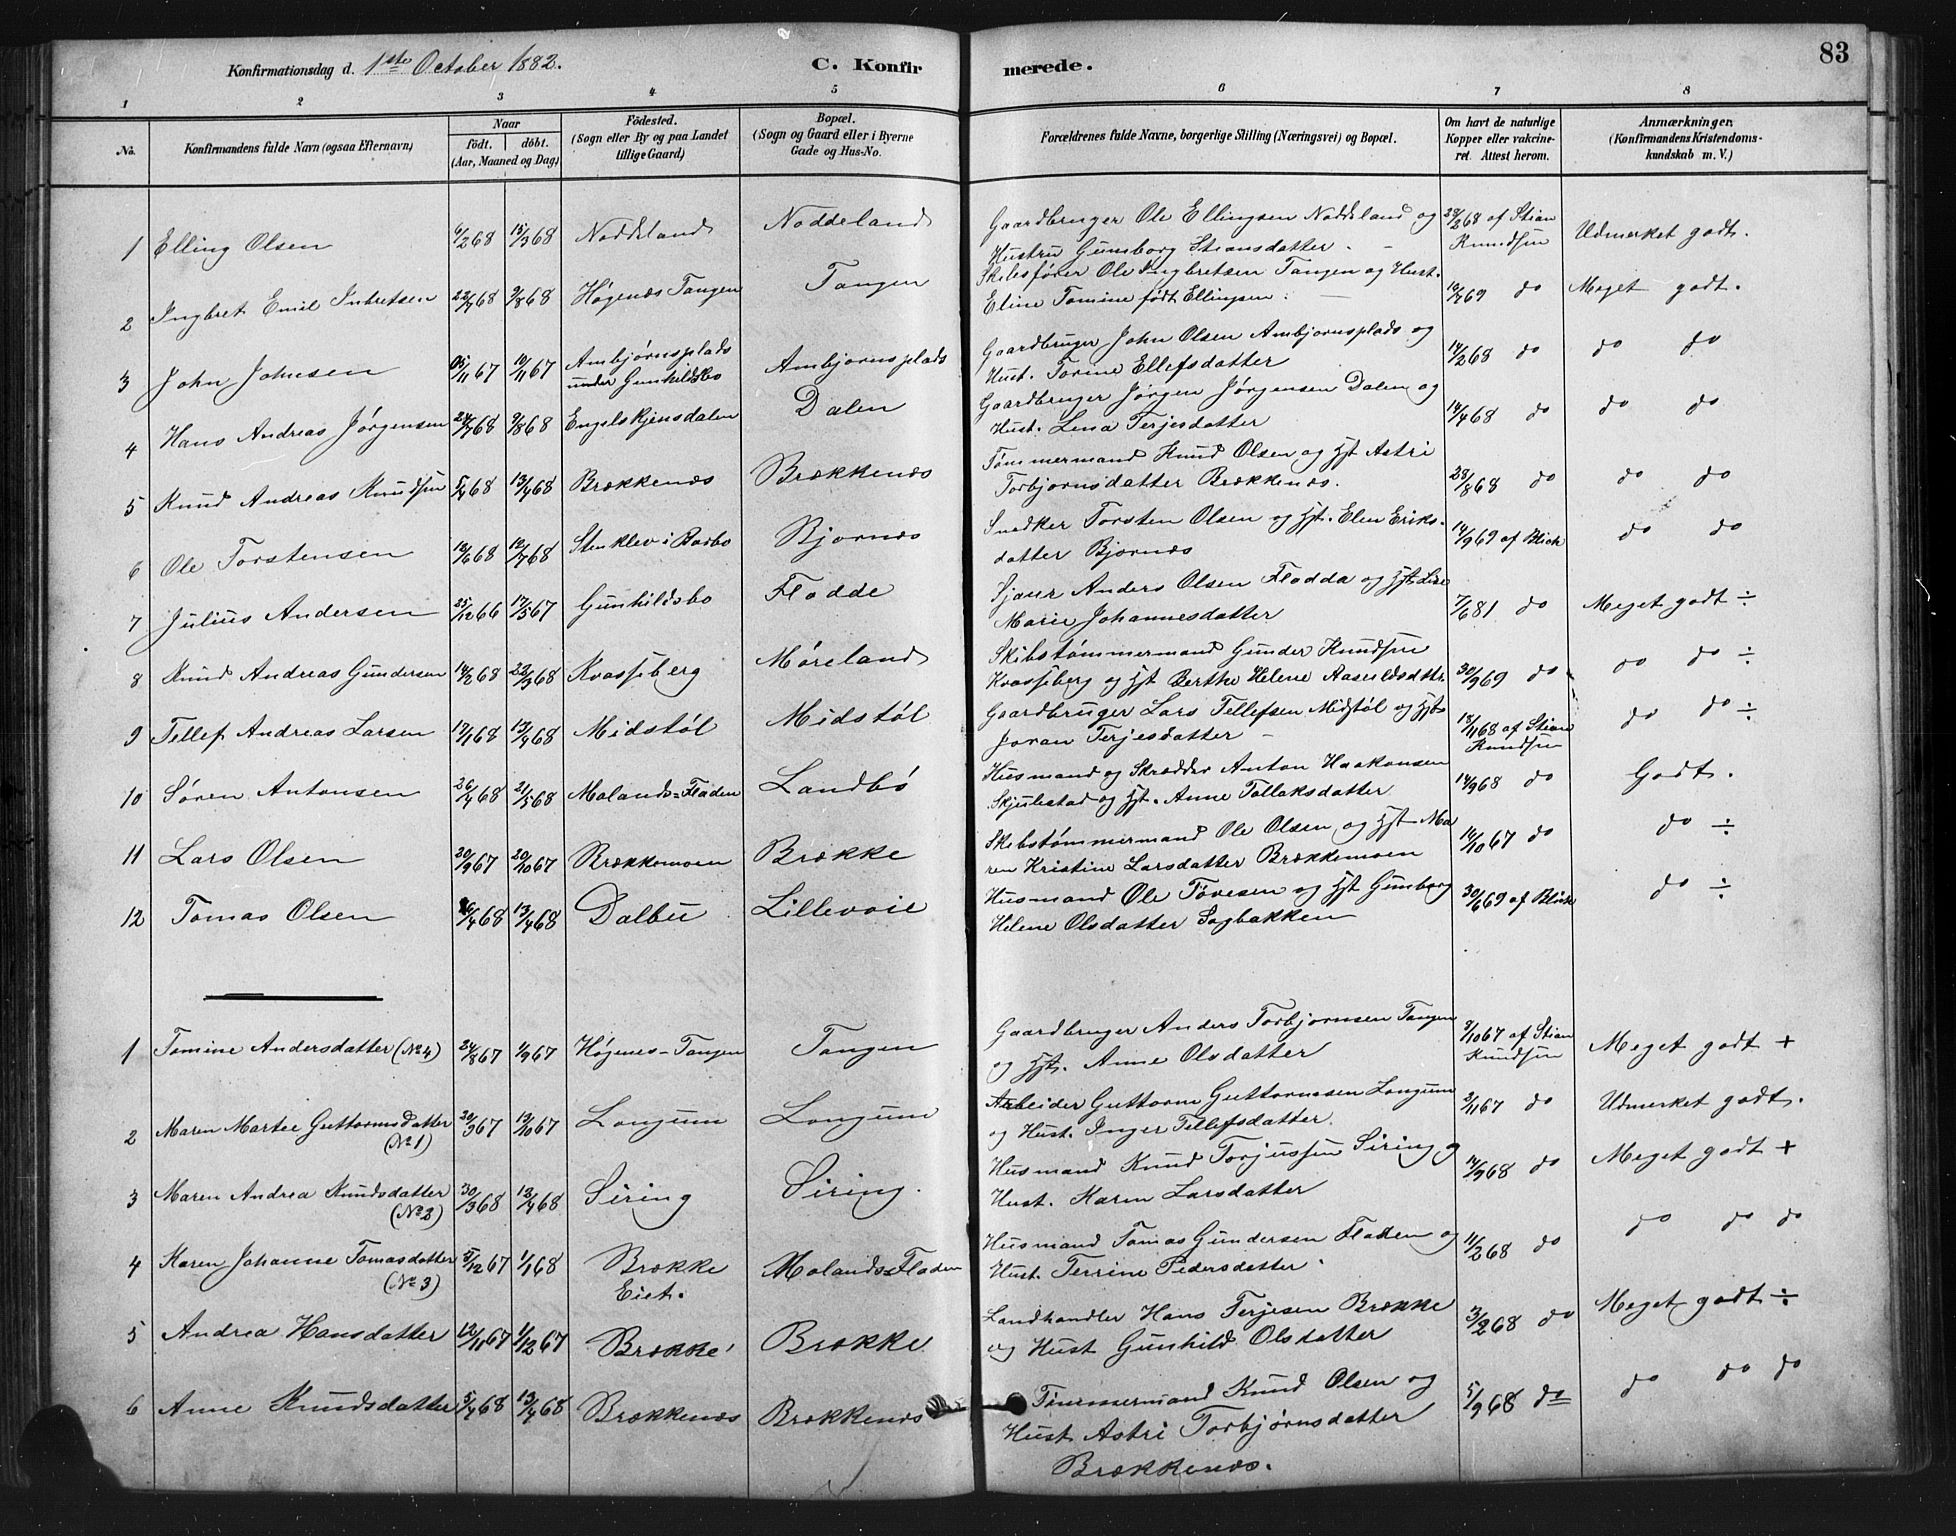 Konfirmationsdag d. 1ste October 1882. C. Konfirmerede. 83
1 2 3 4 5 6 7 8
No. Konfirmandens fulde Navn (ogsaa Efternavn) Naar født. døbt. (Aar, Maaned og Dag) Fødested. (Sogn eller By og paa Landet tillige Gaard) Bopæl. (Sogn og Gaard eller i Byerne Gade og Hus-No. Forældrenes fulde Navne, borgerlige Stilling (Næringsvei) og Bopæl. Om havt de naturlige Kopper eller vakcineret. Attest herom. Anmærkninger. (Konfirmandens Kristendomskundskab m. V.)
1 Elling Olsen 6/2 68 15/3 68 Noddeland Noddeland Gaardbruger Ole Ellingsen Noddeland og 28/2 68 af Stian Udmerket godt.
Hustru Gunborg Stiansdatter. Knudsen
2 Ingbret Emil Inbretsen 22/7 68 9/8 68 Høgenæs Tangen Tangen Skibsfører Ole Ingbretsen Tangen og Hust. 69 do Meget godt.
Eline Tomine født Ellingsen.
3 John Johnsen 11 67 10/11 67 Ambjørnsplads Ambjornsplads Gaardbruger John Olsen Ambjornsplads og 14/2 68 do do do
under Gunhildsbo Hust. Torine Ellefsdatter
4 Hans Andreas Jørgensen 24/7 68 9/8 68 Engelskjensdalen Dalen Gaardbruger Jørgen Jørgensen Dalen og 14/4 68 do do do
Hust. Lena Terjesdatter
5 Knud Andreas Knudsen 5/4 68 13/4 68 Brækkenæs Brækkenæs Tømmermand Knud Olsen og Hst Astri 28/8 68 do do do
Torbjornsdatter Brækkenæs.
6 Ole Torstensen 18/6 68 12/7 68 Stenklev i Barbo Bjornæs Snedker Torsten Olsen og Hst. Elen Eriks- 14/9 69 af Blich do do
datter Bjornæs
7 Julius Andersen 25/12 66 17/3 67 Gunhildsbo Flodde Sjøaur Anders Olsen Flodda og Hst Lise 7/6 81 do Meget godt ÷
Marie Johannesdatter
8 Knud Andreas Gundersen 14/2 68 22/3 68 Kvasseberg Møreland Skibstømmermand Gunder Knudsen 30/9 69 do do do ÷
Kvasseberg og Hst Berthe Helene Aasuldsdattr
9 Tellef Andreas Larsen 17/1 68 13/4 68 Midstøl Midstøl Gaardbruger Lars Tellefsen Midstøl og Hst 18/11 68 af Stian do do ÷
Joran Terjesdatter Knudsen
10 Søren Antonsen 26/4 68 21/5 68 Molands-Fladen Landbø Husmand og Skrædder Anton Haakonsen 14/9 68 do Godt.
Skjulestad og Hst. Anne Tollaksdatter
11 Lars Olsen 20/9 67 20/10 67 Brækkemoen Brække Skibstømmermand Ole Olsen og Hst Ma- 14/10 67 do do ÷
ren Kristine Larsdatter Brækkemoen
12 Tomas Olsen 4 68 13/4 68 Dalbu Lillevoie Husmand Ole Tovesen og Hst Gunborg 30/6 69 af Blich do ÷
Helene Olsdatter Sagbakken
1 Tomine Andersdatter (No 4) 24/8 67 1/9 67 Høgenes-Tangen Tangen Gaardbruger Anders Torbjornsen Tangen 9/10 67 af Stian Meget godt +
og Hst. Anne Olsdatter Knudsen
2 Maren Martee Guttormsdatter 20/9 67 13/10 67 Longum Longum Arbeider Guttorm Guttormsen Longum 3/11 67 do Udmerket godt.
(No 1) og Hust. Inger Tellefsdatter.
3 Maren Andrea Knudsdatter 30/3 68 12/4 68 Siring Siring. Husmand Knud Torjussen Siring og 14/9 68 do Meget godt +
(No 2) Hust. Karen Larsdatter
4 Karen Johanne Tomasdatter 5/12 67 1/1 68 Brække Molands-Fladen Husmand Tomas Gundersen Fladen og 11/2 68 do do do do
(No 3) Eiet. Hust. Terrine Pedersdatter.
5 Andrea Hansdatter 12/11 67 1/12 67 Brække Brække Landhandler Hans Terjesen Brække 3/2 68 do Meget godt ÷
og Hust Gunhild Olsdatter
6 Anne Knudsdatter 5/4 68 13/4 68 Brækkenæs Brækkenæs Tømmermand Knud Olsen og 5/9 68 do do do do
Hust Astri Torbjørnsdatter
Brækkenæs.